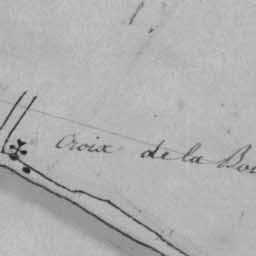 Croix de la Bou